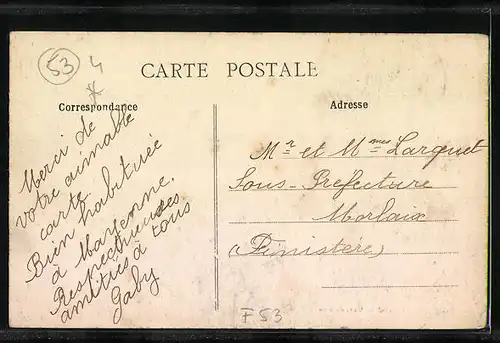 53
4
CARTE POSTALE
Correspondance
Adresse
Merci de
votre aimable
carte
Bien habituée
à Mayenne.
Respectueuses
amitiés à tous
Gaby
Mr et Mmes Larquet
Sous-Prefecture
Morlaix
(Finistere)
F53